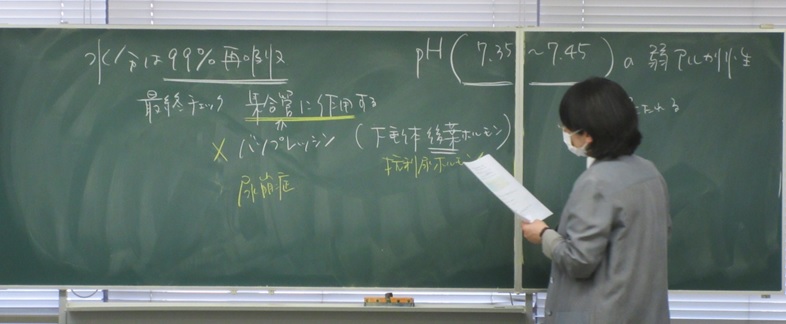 水分は99%再吸収
最終チェック 集合管に作用する
× バソプレッシン (下垂体後葉ホルモン)
抗利尿ホルモン
尿崩症
pH(7.35～7.45)の弱アルカリ性
たれる